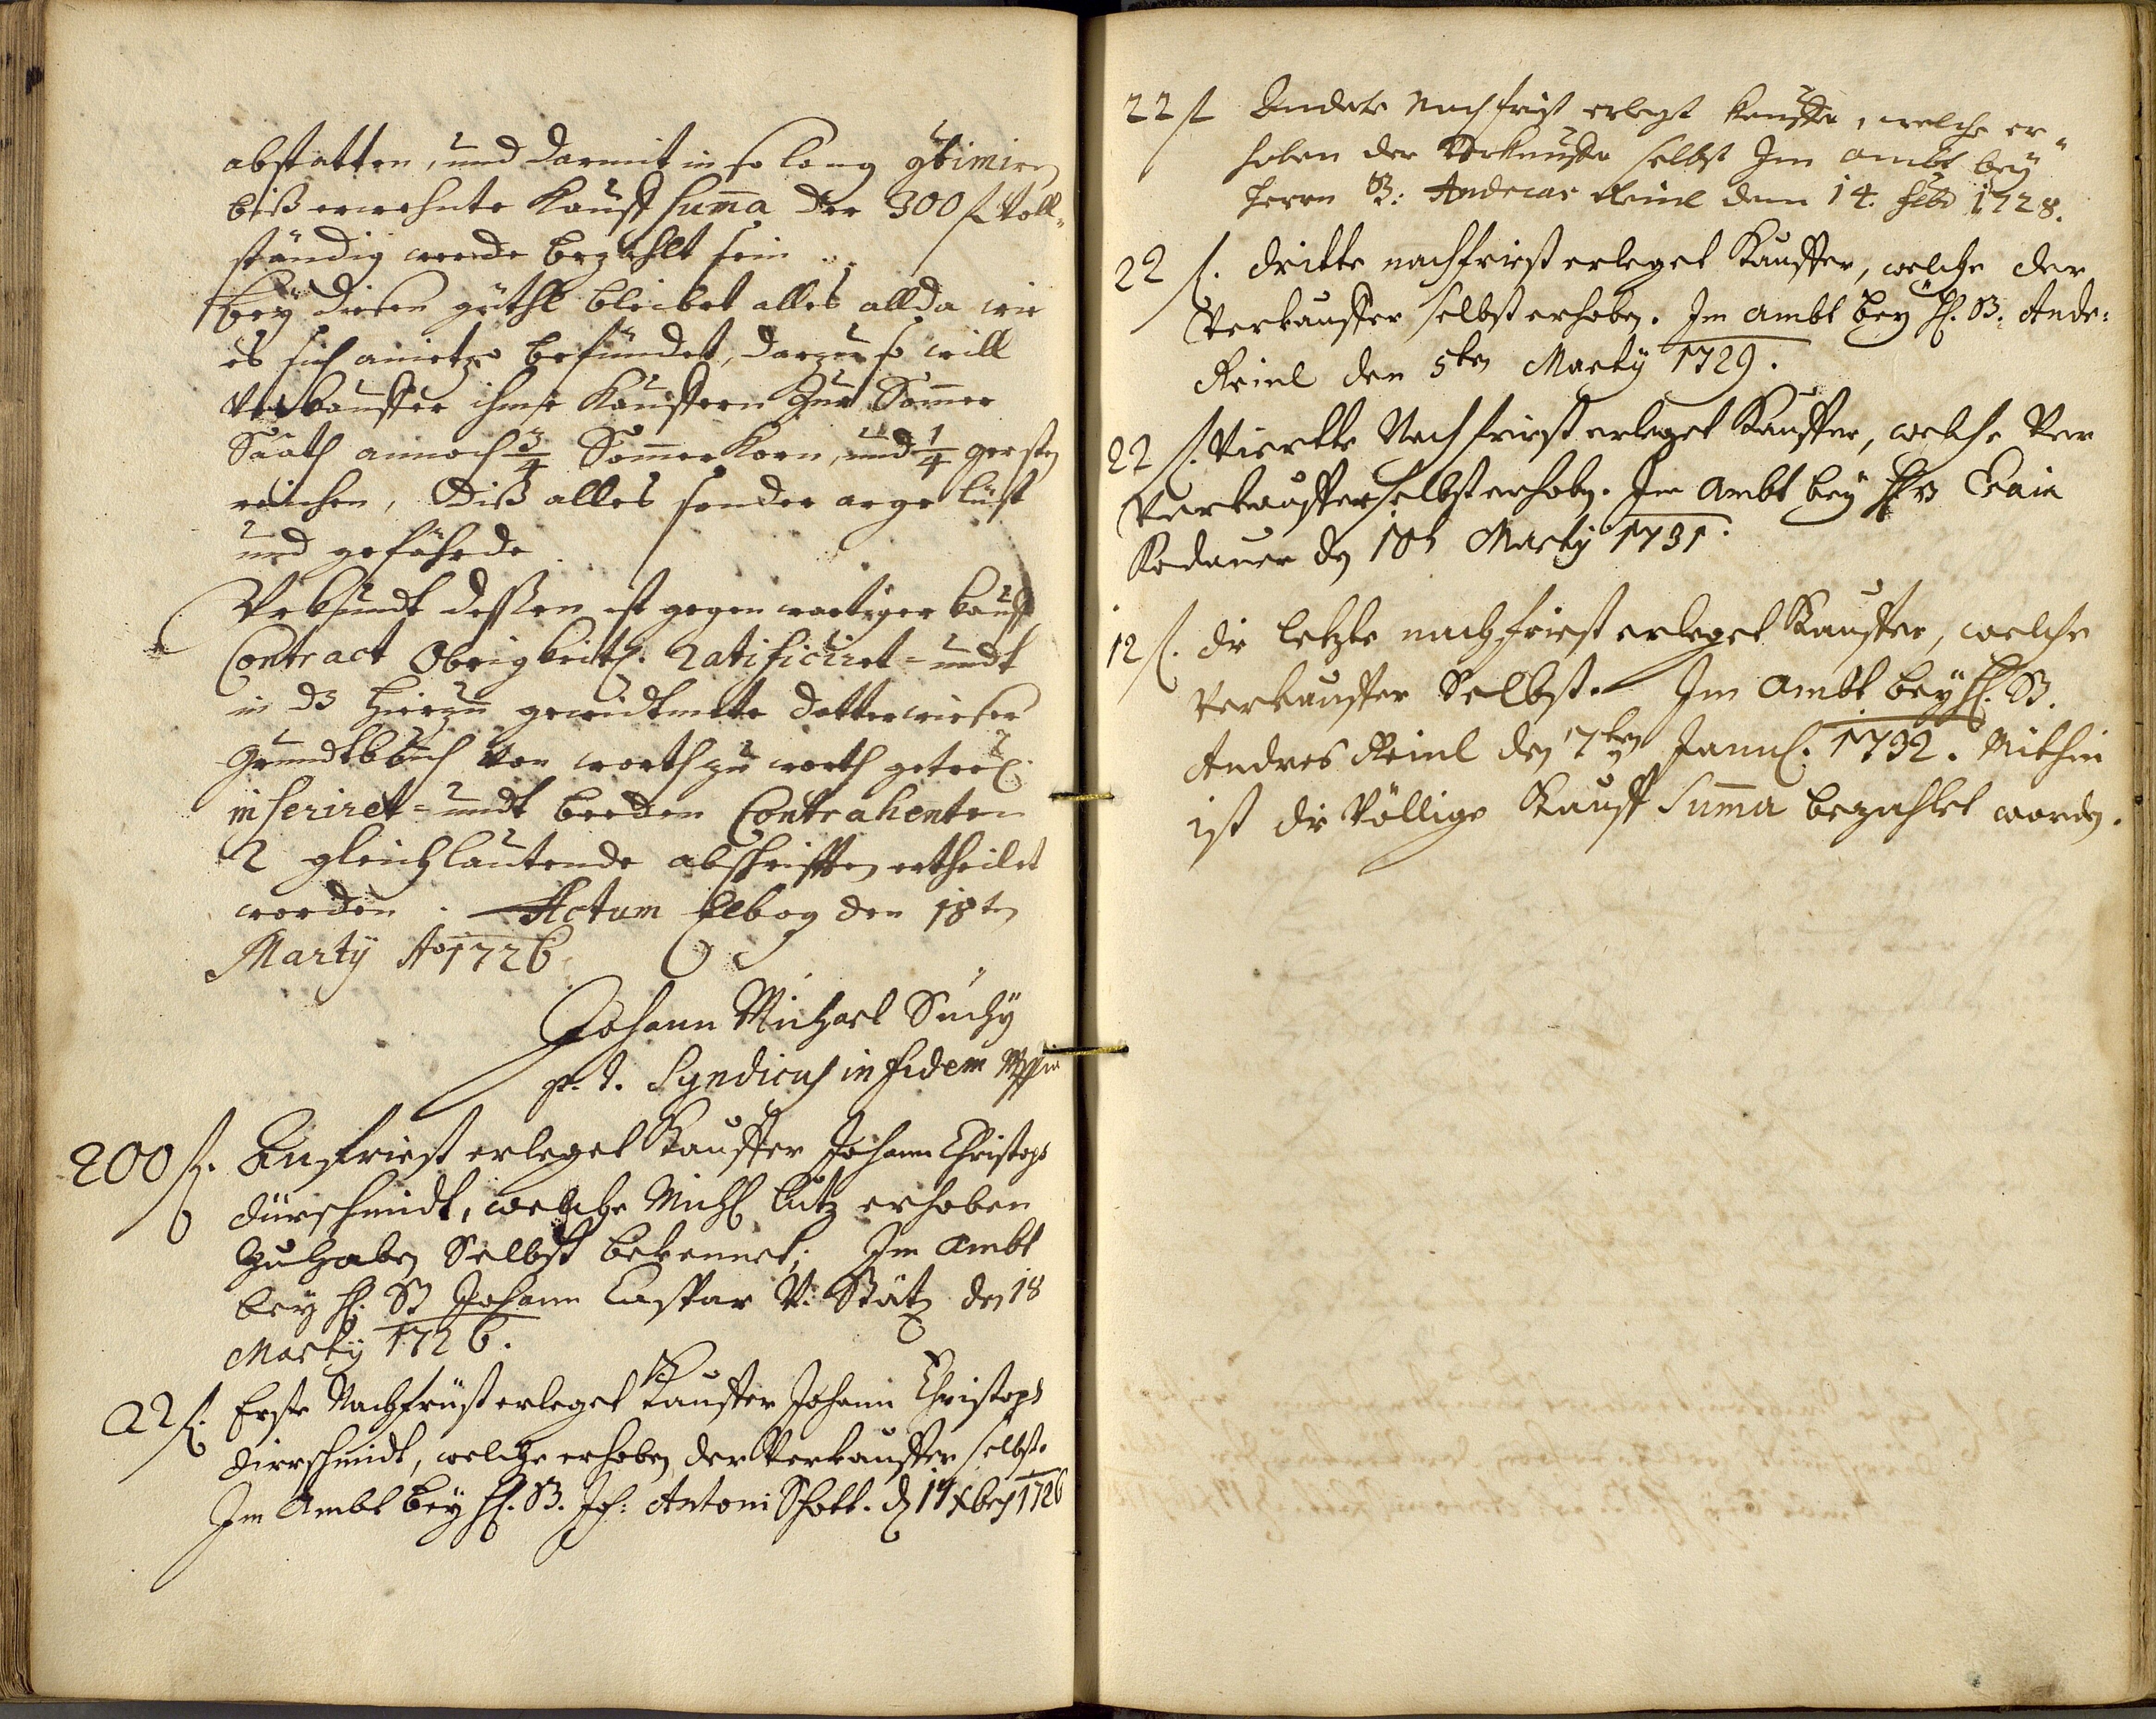 abstatten, und darmit in so lang
biß erwehnte Kauff Suma der 300 f Voll-
ständig werde bezahlt sein.
Bey diesen güthl bleibet alles allda wie
es sich anietzo befündet, darzu so will
Verkauffer ihme Kauffern zur Somer
Saath annoch 3/4 Somer Korn, und 1/4 gersten
reichen, Diß alles sonder arge lüst
und gefährde.
Urkundt dessen ist gegenwertiger Kauff
Contract Obrigkeitl. Ratificiret- undt
in das hierzu gewidtmete Dotterwieser
Grundtbuch von worth zu worth
inseriret- undt beeden Contrahenten
2 gleichlautende abschrifften ertheilet
worden. Actum Elbog den 18ten
Marty Ao 1726
Johann Michael Suchÿ
p. t. Syndicus in fidem
200 f. Angfriest erleget Kauffer Johann Christoph
Dürschmidt, welche Michl Lutz erhoben
zuhaben Selbst bekennet; Im Ambt
bey H. B Johann Caspar V: Stätz den 18
Marty 1726.
22 f. Erste Nachfrüst erleget Kauffer Johann Christoph
Dirrschmidt, welche erhoben der Verkauffer selbst.
Im Ambt bey H. B. Joh: Antoni Schott. d 14 Xbris 1726
22 f Andete Nachfrist erlegt Kauffer, welche er-
hoben der Verkauffer selbst Im ambt bey
Herrn B: Andreas Reinl dem 14. 1728.
22 f. dritte nachfriest erleget Kauffer, welche der
Verkauffer selbst erhoben. Im ambt bey H. B. Andre:
Reinl den 5ten Marty 1729.
22 f. Viertte Nachfriest erleget Kauffer, welche Der
Verkauffer selbst erhoben. Im Ambt bey H B
Kodauer den 10t Marty 1731.
12 f. die letzte nachfriest erleget Kauffer, welche
Verkauffer Selbst. Im Ambt bey H. B.
Andres Reinl den 7ten 1732. Mithin
ist die Völlige Kauff Suma bezahlet worden.